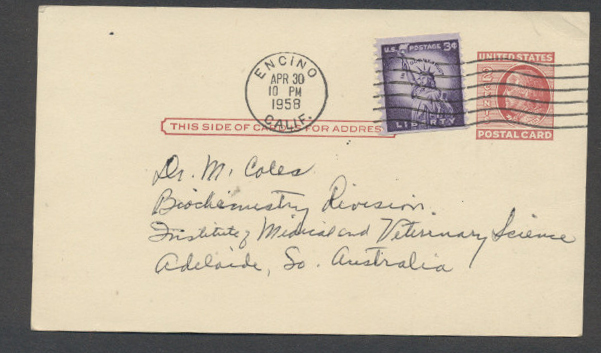 ENCINO
APR 30
10 PM
1958
CALIF.
U.S. POSTAGE 3¢
LIBERTY
UNITED STATES
POSTAL CARD
THIS SIDE OF CA FOR ADDRES
Dr. M. Coles
Biochemistry Division
Institute of Medical and Veterinary Science
Adelaide, So. Australia